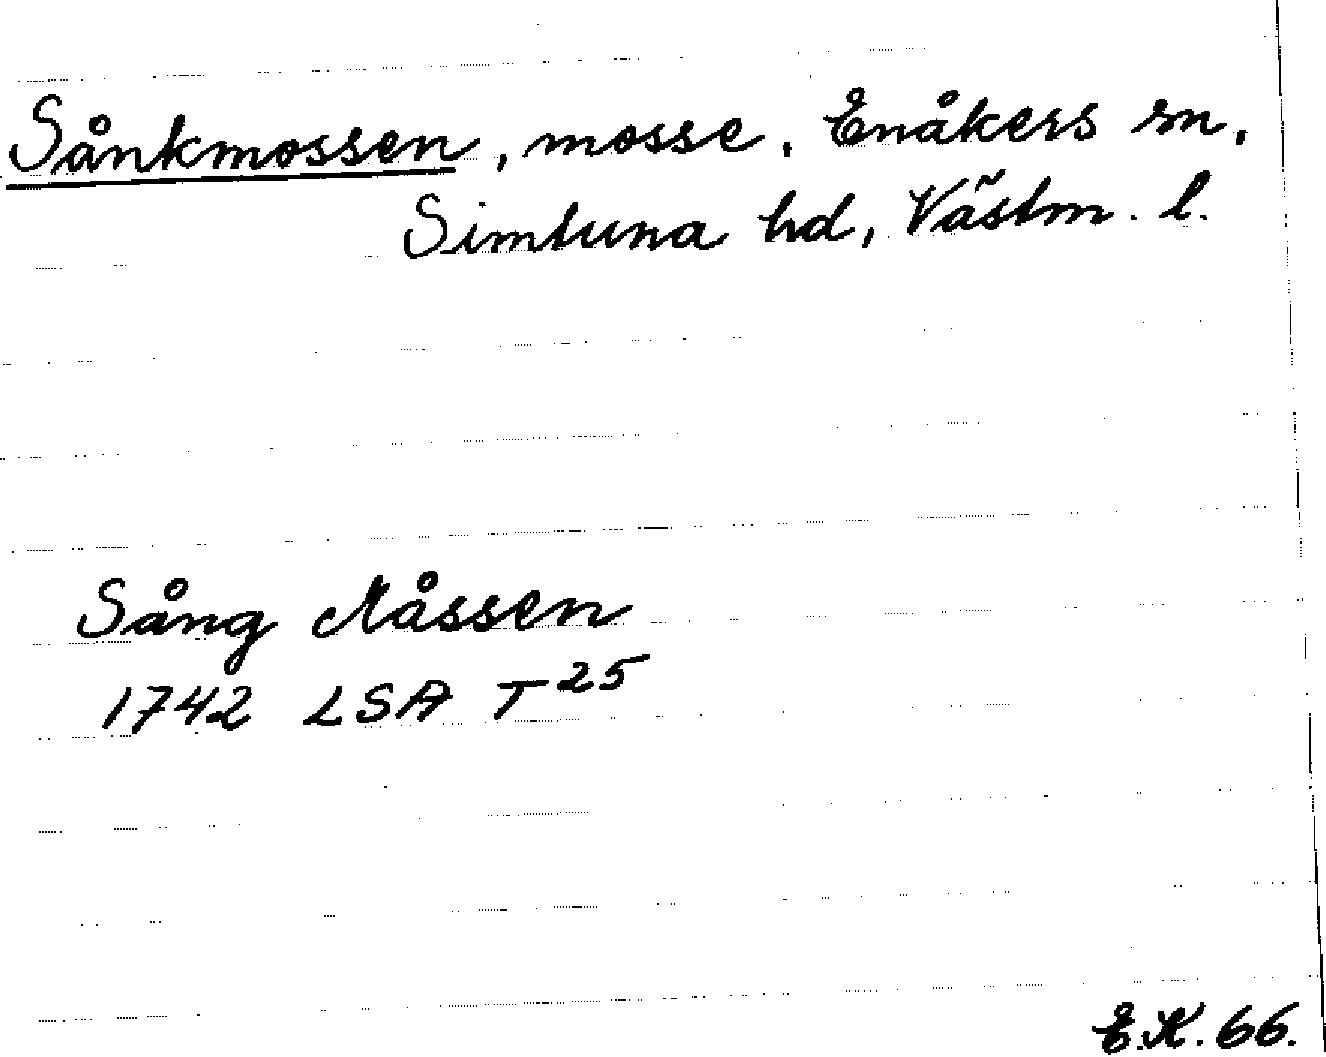 Sånkmossen, mosse, Enåkers sn,
Simtuna hd, Västm. l.
Sång Måssen
1742 LSA T 25
E.K. 66.